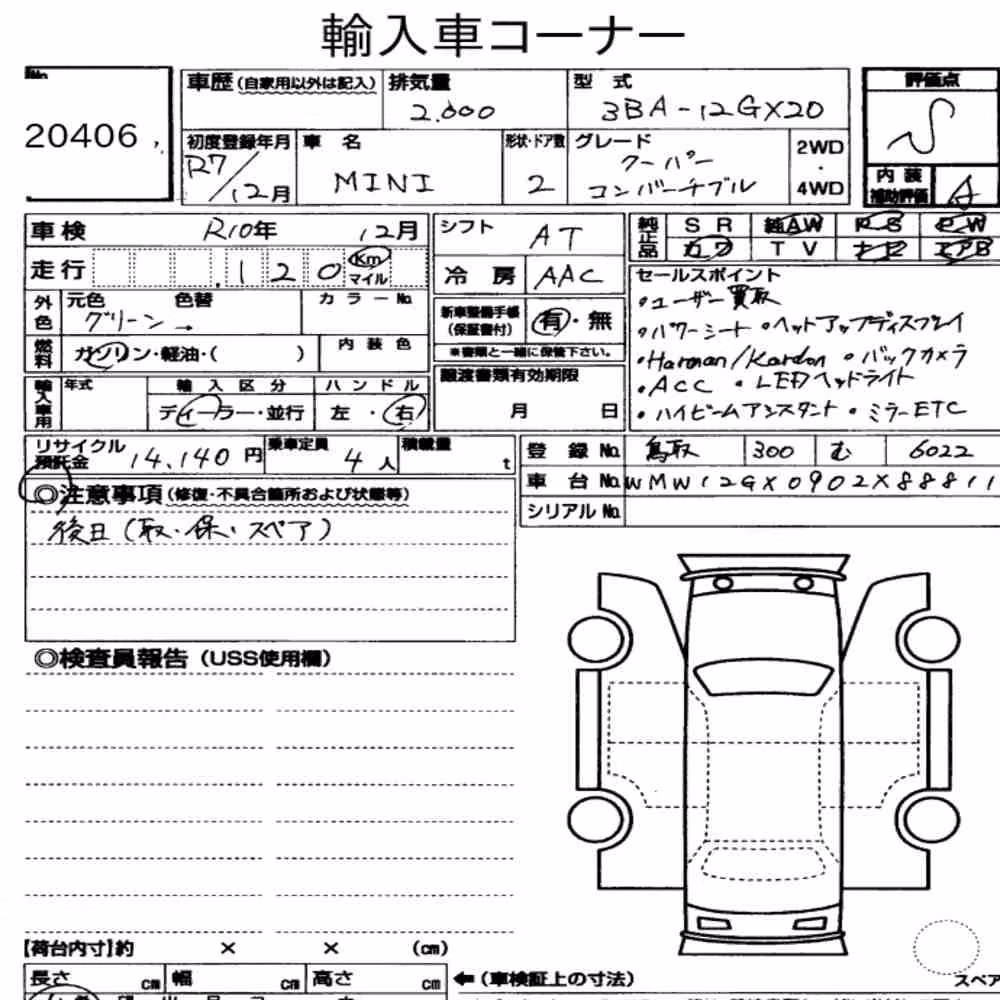 輸入車コーナー
No.
20406
車歴(自家用以外は記入)
排気量
2.000
型 式
3BA-12GX20
評価点
S
初度登録年月
R7/12月
車 名
MINI
形状・ドア数
2
グレード
クーパー
コンバーチブル
2WD
・
4WD
内 装
補助評価
A
車検
R10年 12月
シフト
AT
純正品
SR 純AW PS PW
カワ TV ナビ エアB
走行
.120
Km
マイル
冷 房
AAC
セールスポイント
・ユーザー買取
・パワーシート・ヘットアップディスプレイ
・Harman/Kardon・バックカメラ
・ACC・LEDヘッドライト
・ハイビームアシスタント・ミラーETC
外色
元色 色替
グリーン→
カラーNo.
新車整備手帳
(保証書付)
有・無
※書類と一緒に保管下さい。
燃料
ガソリン・軽油・( )
内 装 色
輸入車用
年式
輸 入 区 分
ディーラー・並行
ハ ン ド ル
左・右
譲渡書類有効期限
月 日
リサイクル
預託金
14,140円
乗車定員
4人
積載量
t
登 録 No.
鳥取 300 む 6022
車 台 No.
WMW12GX0902X88811
シリアルNo.
◎注意事項(修復・不具合箇所および状態等)
後日(取・保・スペア)
◎検査員報告(USS使用欄)
【荷台内寸】約 × × (cm)
長さ cm 幅 cm 高さ cm
←(車検証上の寸法)
スペア